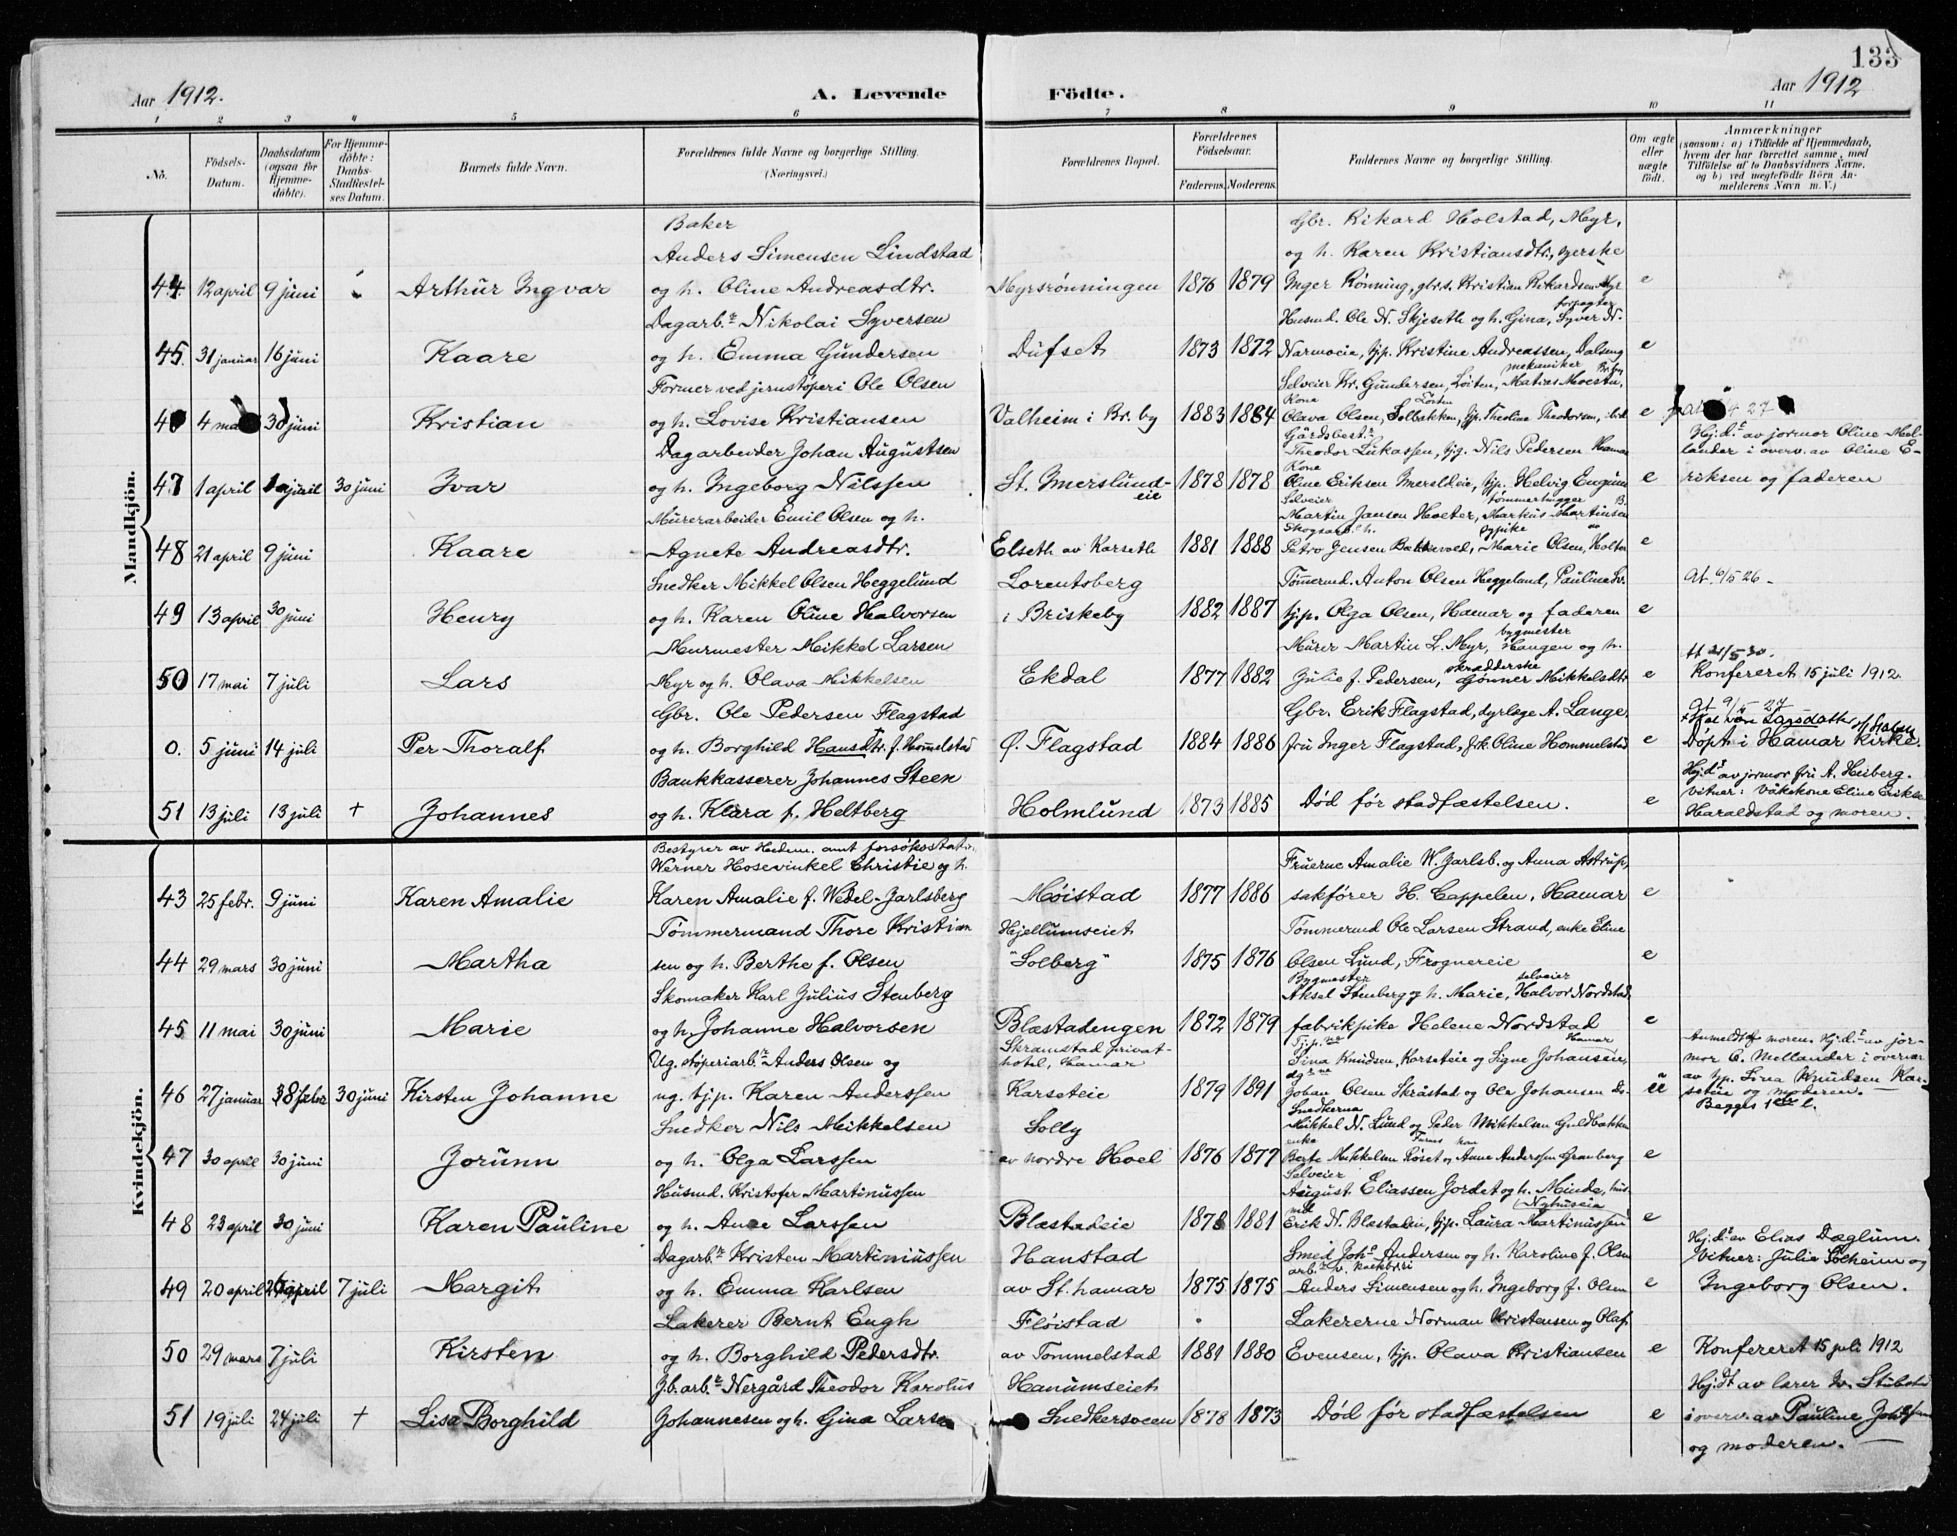 133
Aar 1912. A. Levende Födte. Aar 1912
1 2 3 4 5 6 7 8 9 10 11
No. Födsels-Datum. Daabsdatum (ogsaa for Hjemme-döbte). For Hjemme-döbte: Daabs-Stadfæstel-ses Datum. Barnets fulde Navn. Forældrenes fulde Navne og borgerlige Stilling. (Næringsvei.) Forældrenes Bopæl. Forældrenes Födselsaar. Faderens. Moderens. Faddernes Navne og borgerlige Stilling. Om ægte eller uægte födt. Anmærkninger (saasom: a) i Tilfælde af Hjemmedaab, hvem der har forrettet samme, med Tilföielse af to Daabsvidners Navne, og b) ved uægtefödte Börn An-melderens Navn m. V.)
Mandkjön.
Baker Gbr. Rikard Holstad, Myr,
Anders Simensen Lindstad og h. Karen Kristiansdtr., syerske
44. 12 april 9 juni Arthur Ingvar og h. Oline Andreasdtr. Myrsrønningen 1876 1879 Inger Rønning, gbrs. Kristian Rikardsen Myr e
forpagter
Dagarb.r Nikolai Syversen Husmd. Ole N. Skjeseth og h. Gina, Syver N.
45. 31 januar 16 juni Kaare og h. Emma Gundersen Dufset 1873 1872 Narmoeie, tjp. Kristine Andreassen, Dalseng e
mekaniker
Former ved jernstøperi Ole Olsen Selveier Kr. Gundersen, Løiten, Matias Moestu,
Kone Løten
4 4 ma 30 juni Kristian og h. Lovise Kristiansen Valheim i Br. by 1883 1884 Olava Olsen, Solbakken, tjp. Theoline Theodorsen, e 27
Gårdsbest.r Hj.d.t av jormor Oline Mel-
Dagarbeider Johan Augustsen Theodor Lukassen, tjg. Nils Pedersen Hamar lander i overv. av Oline E-
Kone
47 1 april april 30 juni Ivar og h. Ingeborg Nilssen St. Imerslund-eie 1878 1878 Oline Eriksen Imersldeie, tjp. Helvig Engum e riksen og faderen
Selveier tømmerhugger
Murerarbeider Emil Olsen og h. Martin Jansen Holter, Markus Martinsen
Skogsarb. h. sypike
48 21 april 9 juni Kaare Agnete Andreasdtr. Elseth av Korseth 1881 1888 Petro Jensen Bakkevold, Marie Olsen, Holter e
Snedker Mikkel Olsen Heggelund Lorentsberg Tømmermd. Anton Olsen Heggeland, Pauline At. 6/5 26 -
49 13 april 30 juni Henry og h. Karen Oline Halvorsen i Briskeby 1882 1887 tj.p. Olga Olsen, Hamar og faderen e
bygmester
Murmester Mikkel Larsen Murer Martin L. Myr, Haugen og h. tt 21/5 30.
skrædderske
50 17 mai 7 juli Lars Myr og h. Olava Mikkelsen Ekdal 1877 1882 Julie f. Pedersen, Gønner Mikkelsdtr e Konfereret 15 juli 1912.
Gbr. Ole Pedersen Flagstad Gbr. Erik Flagstad, dyrlæge A. Lange,
0. 5 juni 14 juli Per Thoralf og h. Borghild Hansdtr. f. Hommelstad Ø. Flagstad 1884 1886 fru Inger Flagstad, frk. Oline Hommelstad e Døpt i Hamar kirke.
Bankkasserer Johannes Steen Hj.dt av jormor fru A. Heiberg.
51 13 juli 13 juli + Johannes og h. Klara f. Heltberg Holmlund 1873 1885 Død før stadfæstelsen. e vitner: våkekone Eline Eriksen
Haraldstad og moren.
Kvindekjön.
Bestyrer av Hedem. amt forsøksstat.
Werner Hosevinkel Christie og h. Fruerne Amalie W. Jarlsb. og Anna Astrup,
43 25 febr. 9 juni Karen Amalie Karen Amalie f. Wedel-Jarlsberg Møistad 1877 1886 sakfører H. Cappelen, Hamar e
Tømmermand Thore Kristian Hjellumseiet Tømmermd Ole Larsen Strand, enke Eline
44 29 mars 30 juni Martha sen og h. Berthe f. Olsen "Solberg" 1875 1876 Olsen Lund, Frognereie e
Bygmester selveier
Skomaker Karl Julius Stenberg Aksel Stenberg og h. Marie, Halvor Nordstad
45 11 mai 30 juni Marie og h. Johanne Halvorsen Blæstadengen 1872 1879 fabrikpike Helene Nordstad e
Tjp.ne Hamar
Ug. støperiarb.r Anders Olsen og Skramstad privat-hotel, Hamar Lina Knudsen, Korseteie og Signe Johansen, Anmeldt af moren. Hj.d.t av jor-
mor C. Mellander i overvær
46 27 januar 8 febr 30 juni Kirsten Johanne ug. tj.p. Karen Anderssen Karseteie 1879 1891 Johan Olsen Skråstad og Ole Johansen ue av tjp. Lina Knudsen Kar-
seteie og moderen.
Begges 1ste l.
Snedkerne
Snedker Nils Mikkelsen Solly Mikkel N. Lund og Peder Mikkelsen Guldbakken
enke Furnes kon
47 30 april 30 juni Jorunn og h. Olga Larssen av nordre Hoel 1876 1877 Berte Mikkelsen Røset og Anne Anderssen Granberg e
Selveier
Husmd. Kristofer Martinussen August Eliassen Jordet og h. Minda, hus-
Nyhuseie
48 23 april 30 juni Karen Pauline og h. Anne Larssen Blæstadeie 1878 1881 Erik N. Blæstaden, tjp. Laura Martinussen e
Dagarb.r Kristen Martiniussen Hanstad Smed Joh.s Andersen og h. Karoline f. Olsen Hj.d.t av Elias Dæglum.
Vitner: Julie Solheim og
49 20 april 26 april 7 juli Margit og h. Emma Karlsen av St. hamar 1875 1875 Anders Simensen og h. Ingeborg f. Olsen e Ingeborg Olsen.
Lakerer Bernt Engh Fløistad Lakererne Norman Kristensen og Olaf
50 29 mars 7 juli Kirsten og h. Borghild Pedersdtr. av Tommelstad 1881 1880 Evensen, tjp. Olava Kristiansen e Konfereret 15 juli 1912
J.b.arb.r Nergård Theodor Karolus Hanumseiet Hj.dt av lærer
51 19 juli 24 juli + Lisa Borghild Johannesen og h. Gina Larsen Snedkersveen 1878 1873 Død før stadfæstelsen e i overv. av Pauline
og moderen.